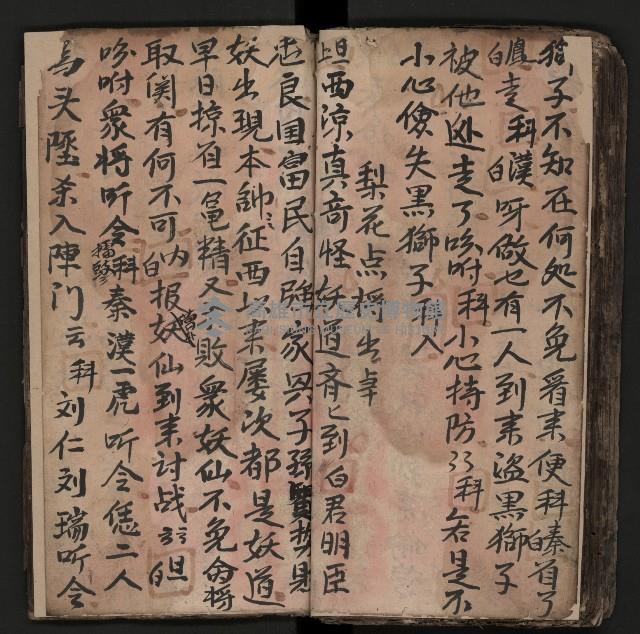 獅子不知在何处不免看来便科秦白有了
走科漢白呀做也有一人到来盗黑獅子
被他逃走了吩咐科小心持防科若是不
小心儉失黑獅子入
梨花点将出台
旦西凉真奇怪妖道齐匕到白君明臣
忠良国富民自強家
妖出現本帥征西以来屡次都是妖道
早日掠有一黾精又敗衆妖仙不免命将
取関有何不可内白报妖仙到来讨战旦白
吩咐衆将听令科秦漢一虎听令恁二人
擂鼓
馬头墜杀入陣门云科刘仁刘瑞听令